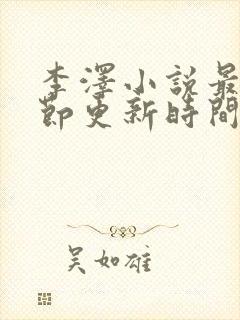 李澤小說最
節更新時間
吴如雄